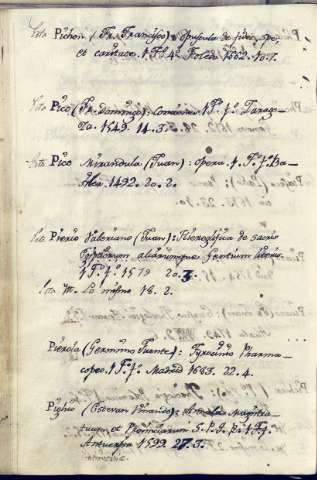 Pichon (Fr. Francisco): Opuscula de fide, spe,
et caritate. 1 Tº 4º Toledo 1662. 10.7.
Pico (Fr. Domingo): Concordia 1 Tº fº Zarago-
za. 1549. 14.3.
Pico Mirandula (Juan): Opera 1. Tº fº Ba-
1492. 20. 2.
Pierio Valeriano (Juan): Hieroglifica de sacris
aliarumque Gentium
1 Tº fº 1579 20. 3.
Lo mismo 18. 2.
Pierola (Geronimo Fuente): Tyrocinio Pharma-
copeo. 1 Tº fº Madrid 1683. 22. 4.
Pighio (Estevan Vinando): Annales Magistra-
tuum, et Provinciarum S. P. Q. R. 1 Tº fº
Antuerpia 1599. 27. 3.